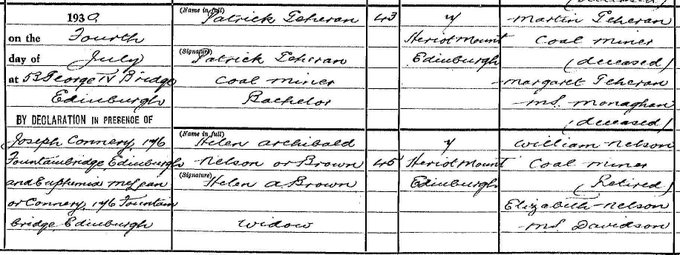 1939
on the Fourth
day of July
at 53 George IV Bridge
Edinburgh
BY DECLARATION IN PRESENCE OF
Joseph Connery, 176
Fountainbridge Edinburgh
and Euphemia McLean
or Connery, 176 Fountain
bridge Edinburgh
(Name in full)
Patrick Teheran
(Signature)
Patrick Teheran
Coal miner
Bachelor
(Name in full)
Helen Archibald
Nelson or Brown
(Signature)
Helen A Brown
Widow
43
45
Heriot Mount
Edinburgh
Heriot Mount
Edinburgh
Martin Teheran
Coal miner
(deceased)
Margaret Teheran
m.s. Monaghan
(deceased)
William Nelson
Coal miner
(Retired)
Elizabeth Nelson
m.s. Davidson